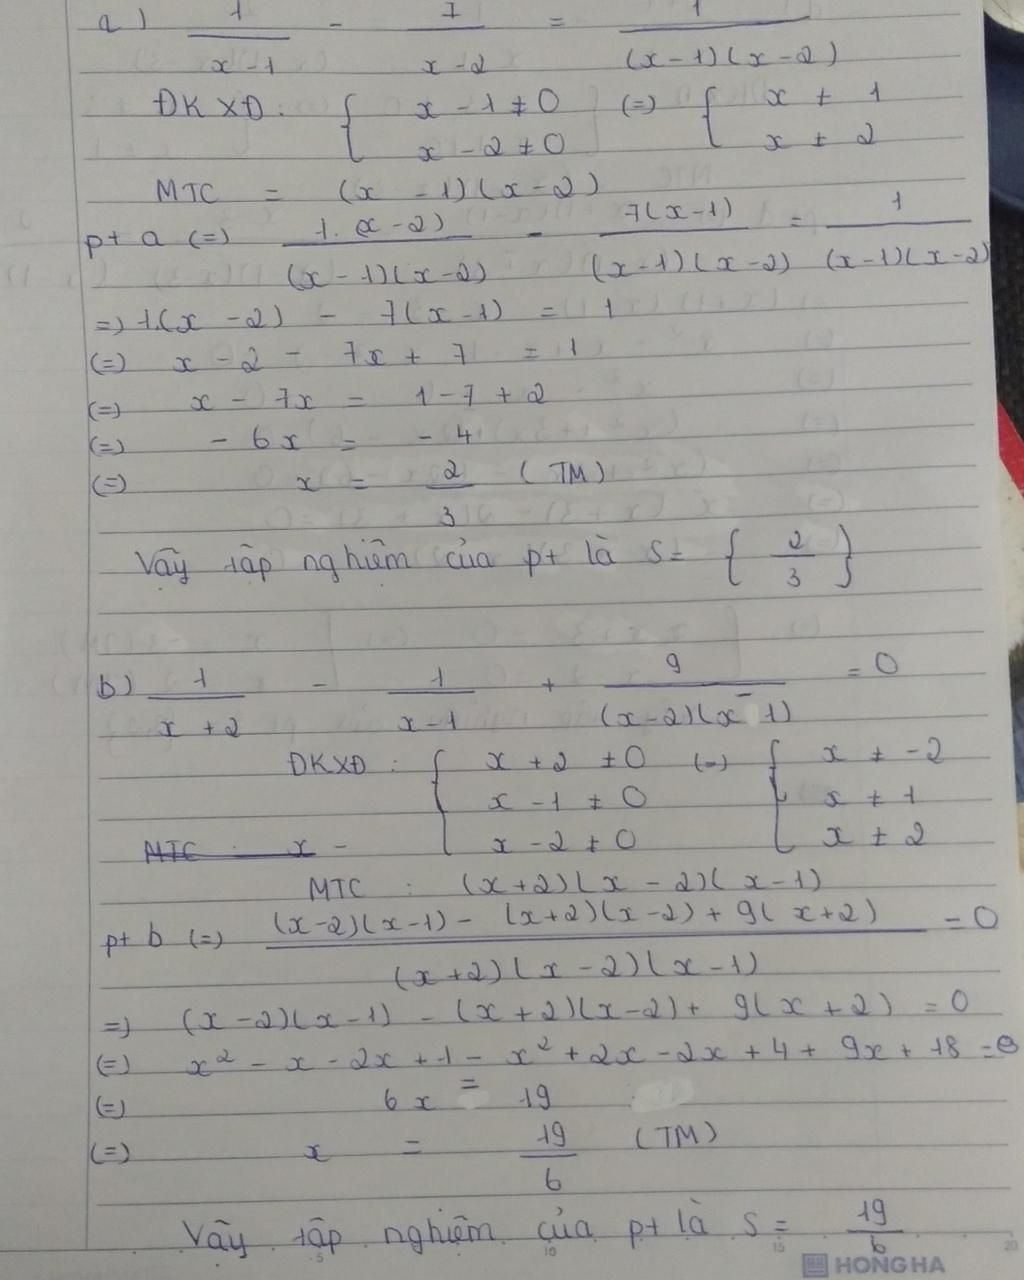 a) 1/(x-1) - 7/(x-2) = 1/((x-1)(x-2))
ĐKXĐ: { x-1≠0 (=) { x ≠ 1
x-2≠0 x ≠ 2
MTC = (x-1)(x-2)
pt a (=) 1.(x-2)/((x-1)(x-2)) - 7(x-1)/((x-1)(x-2)) = 1/((x-1)(x-2))
=) 1.(x-2) - 7(x-1) = 1
(=) x - 2 - 7x + 7 = 1
(=) x - 7x = 1-7+2
(=) -6x = -4
(=) x = 2/3 (TM)
Vậy tập nghiệm của pt là S= {2/3}
b) 1/(x+2) - 1/(x-1) + 9/((x-2)(x-1)) = 0
ĐKXĐ: { x+2 ≠0 (=) { x ≠ -2
x-1 ≠ 0 x ≠ 1
MTC x - x-2 ≠ 0 x ≠ 2
MTC : (x+2)(x-2)(x-1)
pt b (=) ((x-2)(x-1) - (x+2)(x-2) + 9(x+2))/((x+2)(x-2)(x-1)) = 0
=) (x-2)(x-1) - (x+2)(x-2) + 9(x+2) = 0
(=) x² - x - 2x + 1 - x² + 2x - 2x + 4 + 9x + 18 = 0
(=) 6x = 19
(=) x = 19/6 (TM)
Vậy tập nghiệm của pt là S = 19/6
5 10 15 20
HONG HA